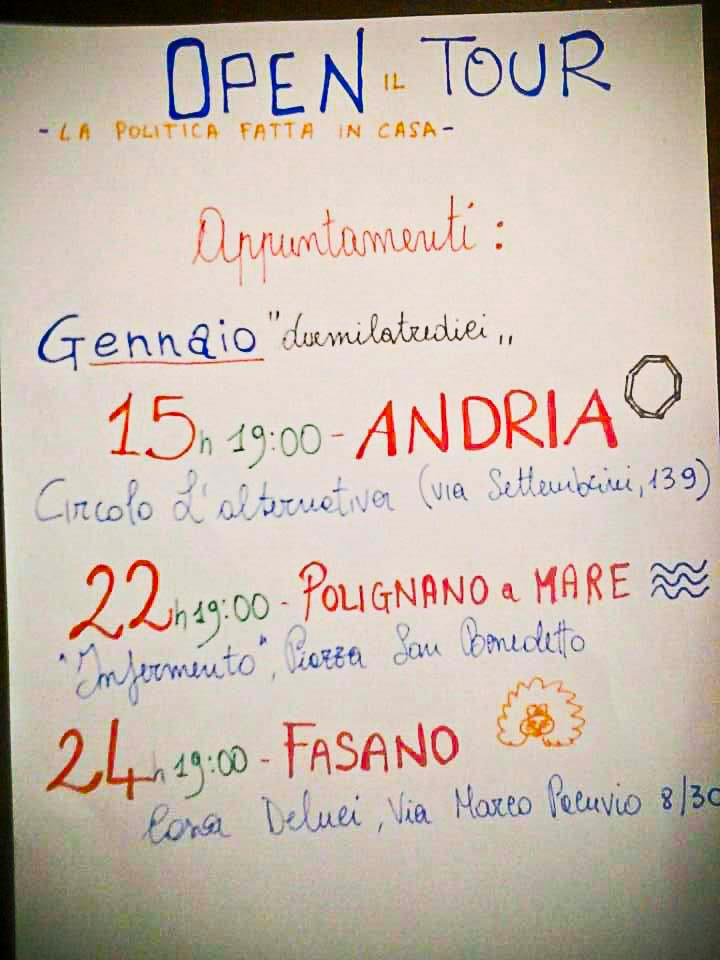 OPEN IL TOUR
- LA POLITICA FATTA IN CASA -
Appuntamenti:
Gennaio "duemilatredici"
15 h 19:00 - ANDRIA
Circolo L'alternativa (via Settembrini, 139)
22 h 19:00 - POLIGNANO a MARE
"Infermento", Piazza San Benedetto
24 h 19:00 - FASANO
Casa Deluci, Via Marco Pacuvio 8/30